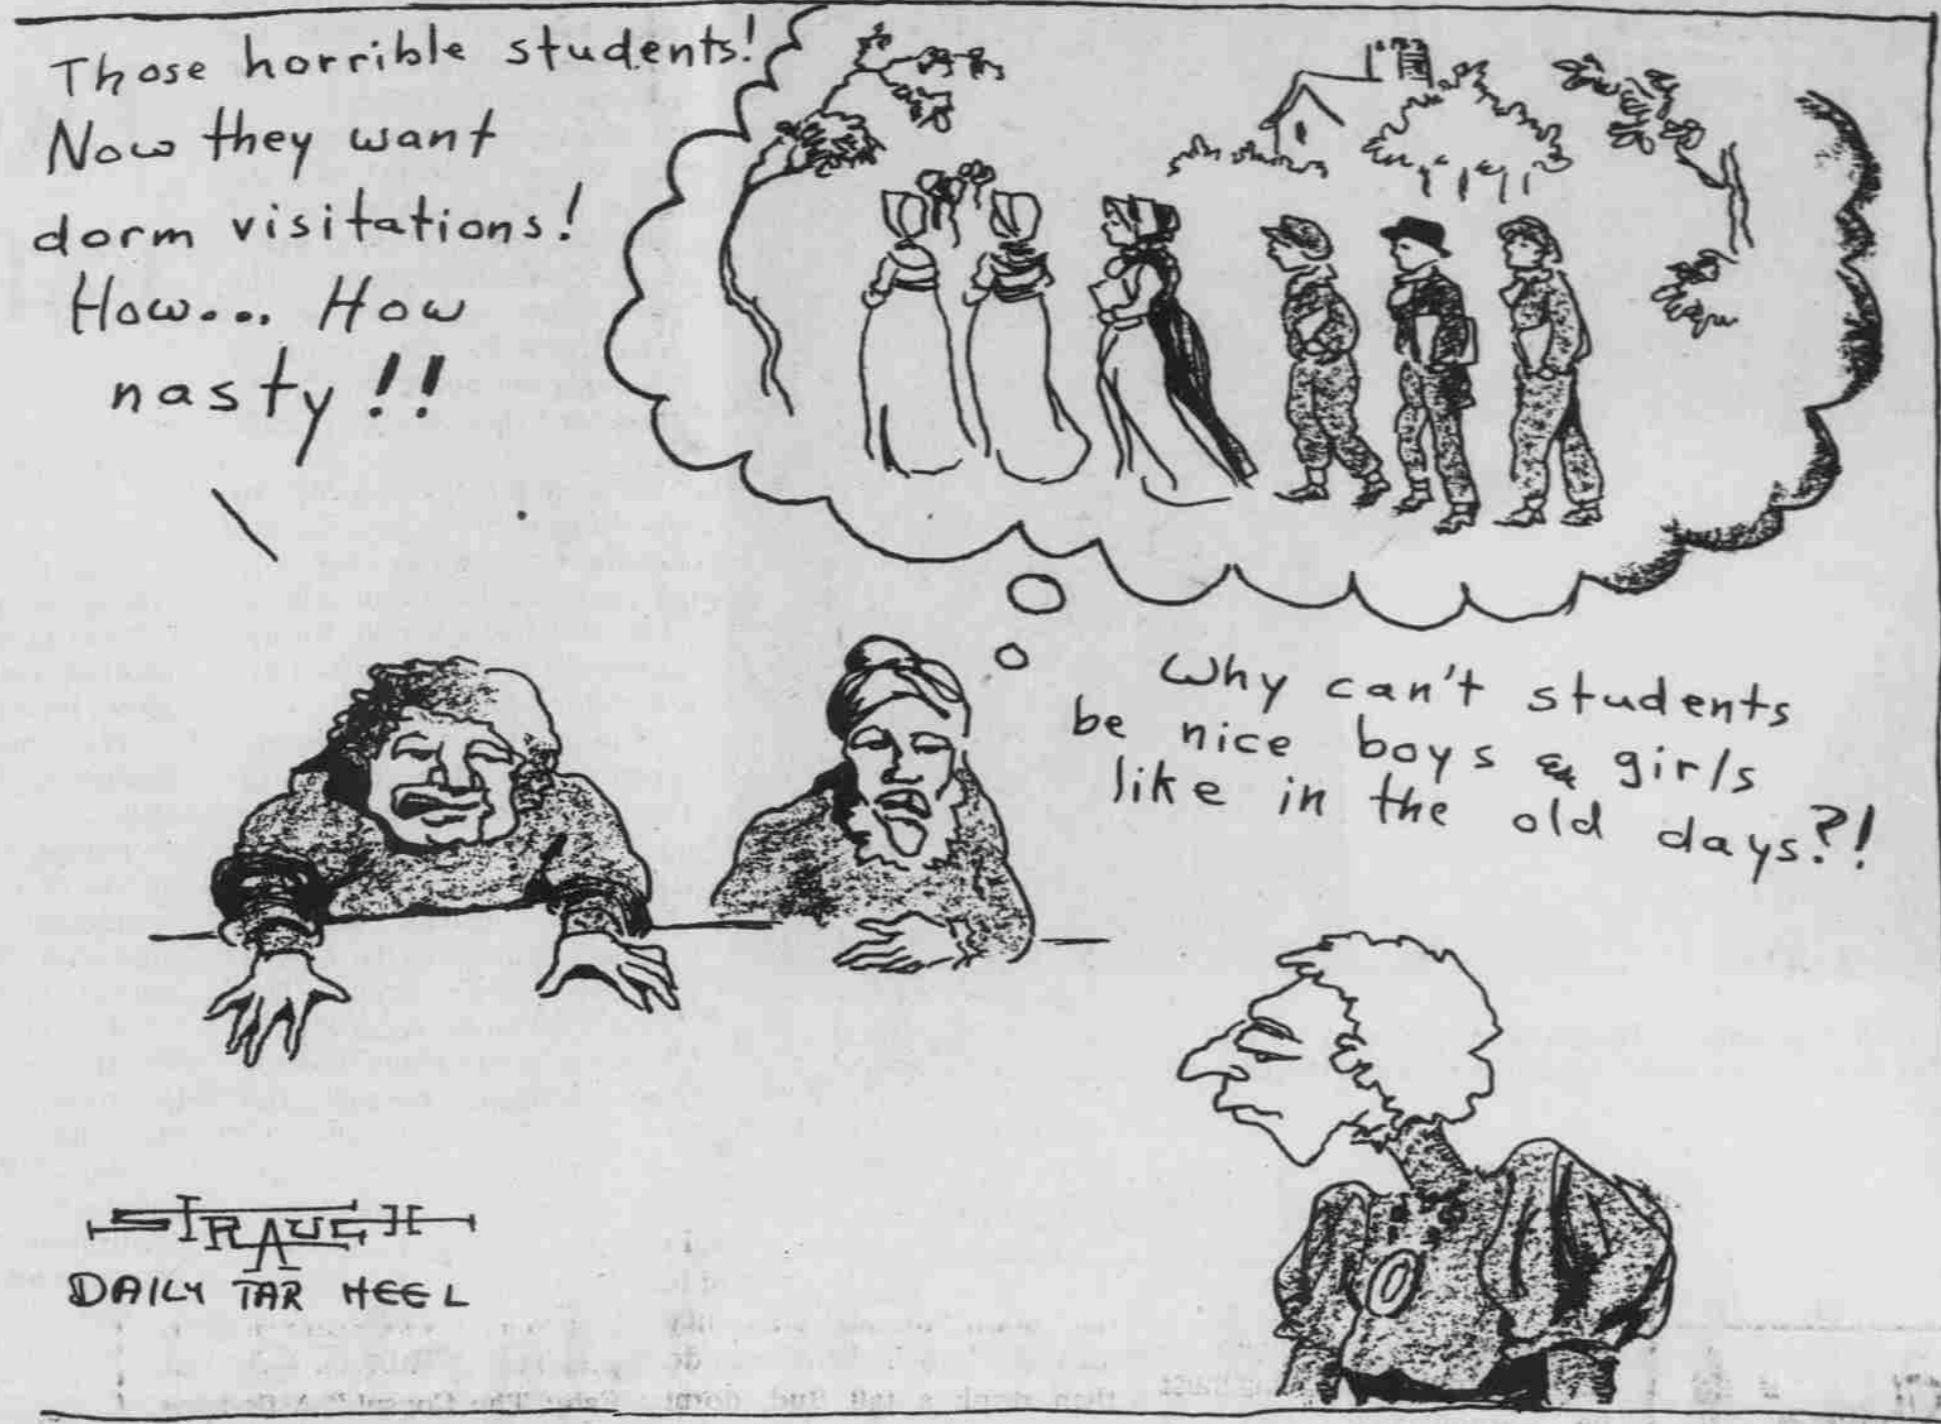 Those horrible students!
Now they want
dorm visitations!
How... How
nasty!!
Why can't students
be nice boys & girls
like in the old days?!
STRAUCH
DAILY TAR HEEL